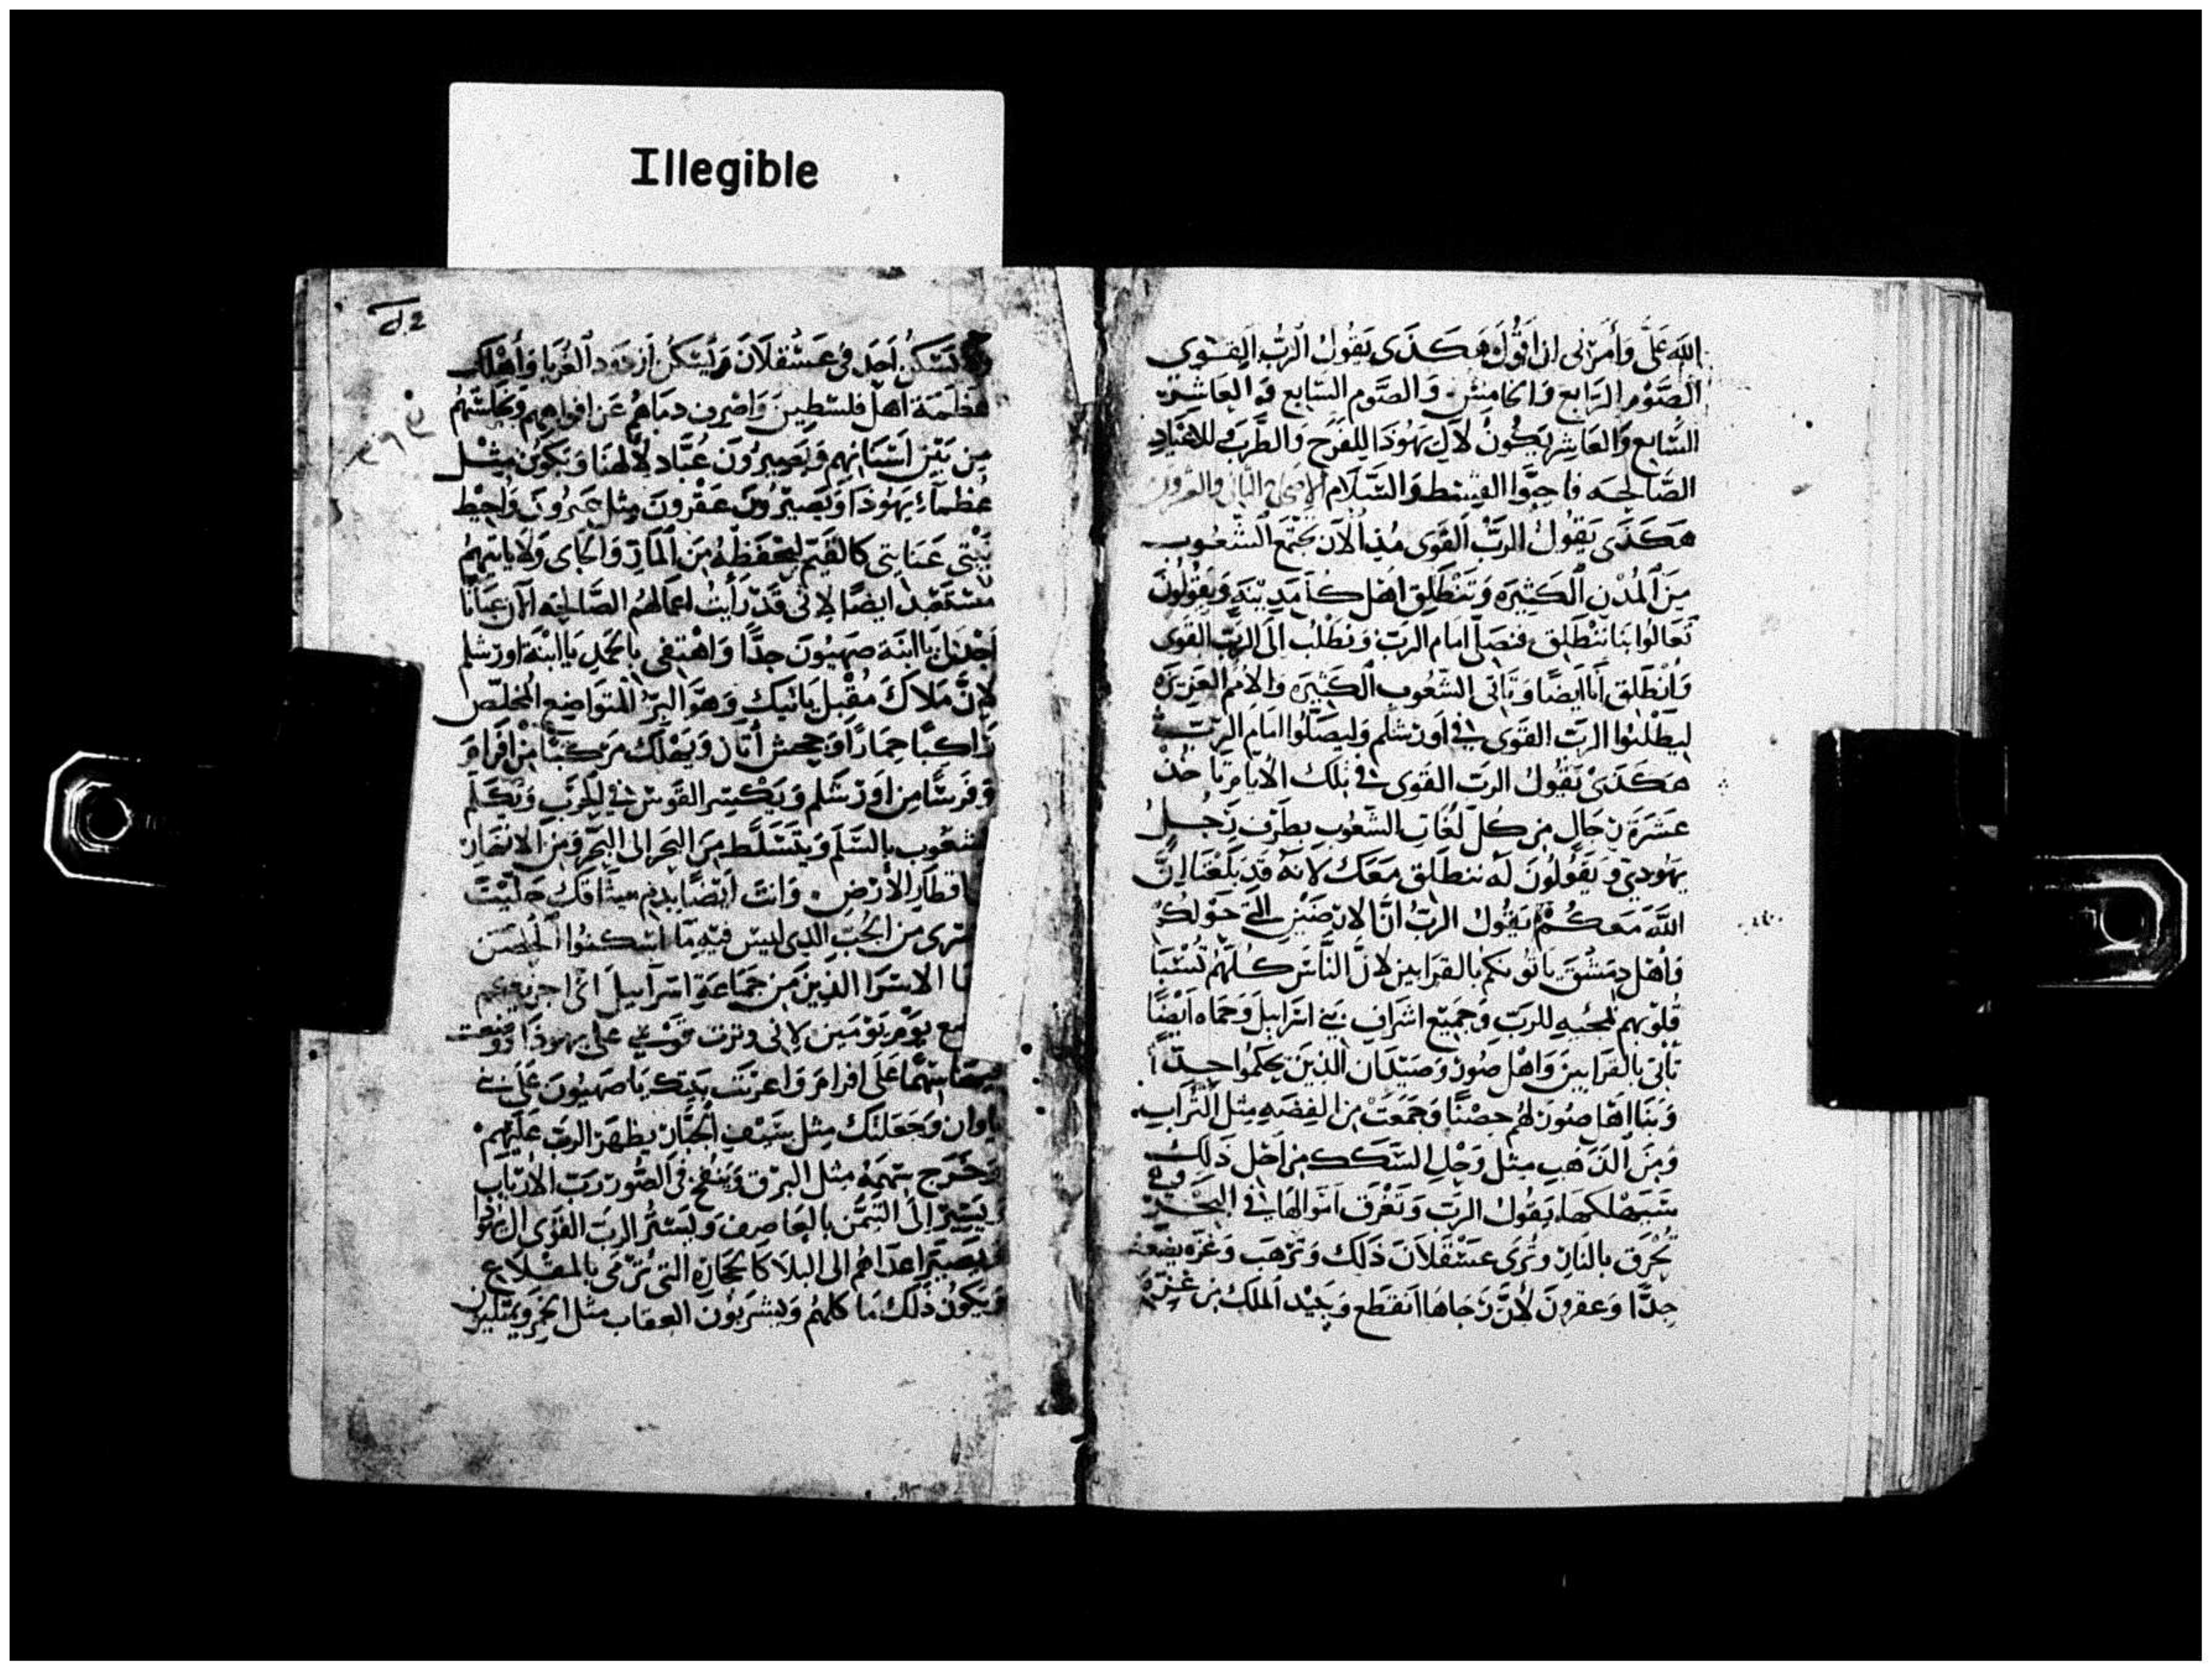 Illegible
الله علَّى وَأمرَني ان اقولَ هَكذَى يَقُولُ الرَّبّ القوى
الصَّوْم الرَابع وَالخامِسْ وَالصَّوم السَّابع وَالعَاشِرْ
السَّابع وَالعَاشِر يَكونُ لآلِ يَهُوذَا لِلفَرَح وَالطَّرَب وَللاعيَادِ
الصَّالحِه فاحِبّوا القِسْط وَالسَّلَام الاصحاح الثاني والعشرون
هَكذَى يَقُولُ الربّ القَوى مُنذ الآن تجتَمع الشُعوب
مِنَ المُدن الكثِيرَه وَتَنْطَلِق اهْل كل مَدِينَةٍ وَيَقُولُونَ
تَعَالوُا بنَا نَنْطَلِق فنصَلّى امَام الربّ وَنطلُب الى الرّبّ القَوى
وَانْطَلِق أنا أيضًا وَتأتى الشّعُوب الكثِيرَه وَالامَم العَزِيزَه
ليَطْلبُوا الربّ القَوى فى اورشَلم وَليصَلّوا امَام الربّ
هَكذَىْ يَقُولُ الربّ القَوى فى تِلك الأيام يَاخذ
عَشرَة رجَالٍ من كلّ لغَاتِ الشّعُوب بطَرَف رَجُلٍ
يَهُودى وَيَقُولونَ لَه نَنطَلِق مَعَك لانهُ قد بَلَغَنا انَّ
اللّهَ مَعَكمْ يَقُول الربّ انَّ الارضَيْن التى حَوْلكمْ
وَأهْل دِمشْقَ يَاتُونكم بالقرَابين لانَّ النَّاسَ كلّهُم تُسْتبا
قُلوبهم لمحبَّه للربّ وَجَميع اشرَاف بَنى اسْرَاييلَ وَحَمَاه ايْضًا
تَأتى بالقرَابين وَاهْل صُور وَصَيْدَان الذِينَ حكمُوا جدًّا
وَبَنَا اهْل صُورَ لهُم حِصْنًا وَجَمعَتْ من الفِضَه مِثل التُّرَاب
وَمِنَ الذَهَب مِثل وَحْل السِّكك من اجل ذَلك
سَيَهْلكهَا يَقُول الربّ وَتَغْرَق امْوَالهَا فى البَحْر وَهى
تُحْرَق بالنَارِ وَتَرى عَسْقَلانَ ذَلك وَتَرْهَب وَغَزّه يَضيعُ
جدًّا وَعقرونَ لأنَّ رجَاهَا انقطع وَيَبيْد الملك من غَزّة
وَلا يَسْكنُ احَد فى عَسْقَلَانَ وَيَسْكن ازدُودَ الغُرَبا وَأهْلك
عَظَمَة اهْل فلسْطِينَ وَاصْرِف دمَاهُم عَن افوَاههم وَنجَاسَتهُم
مِن بَيْن اسْنانِهم وَيَصِيرُونَ عبَّاد لإلَهنَا وَيَكونُ مِثْل
عُظمآء يَهُوذَا وَيَصِيْرُونَ عَقْرُونَ مِثل عَبرُون وَأحِيْط
بَيْتى عَنايتى كالقَيّم ليَحْفَظُه مِنَ المَارّ وَالجَاى وَلا يَاتِيهم
مُسْتَعْبِد ايضًا لانى قَدْ رَأيت اعمَالهُم الصَّالحِه الآن عيَانًا
اجْدَل يَا ابْنَة صَهيُونَ جدًّا وَاهْتفى بالحَمدِ يَا ابْنَة اورشلم
لإنَّ مَلاكَكَ مُقْبِل يَاتيكِ وَهوَ البرّ المتَواضِع المخَلّص
رَاكِبًا حِمَارًا وَجحش أتَان وَيَهْلك مَركبًا من افرَام وَ
وَفَرسًا من اورشَلم وَيَكْسِر القَوس فى الحَرب وَيكلّم
الشعوب بالسَّلم وَيَتسَلَّط مِنَ البحَر الى البَحْر وَمن الانهَار
الى اقطَارِ الأرْض وَانتَ ايضًا بدَم ميثَاقك حَلَلْتَ
الاسرى من الجُبّ الذى ليسَ فيهِ مَآ اسْكنوا الحِصْن
الاسَرَا الذِينَ من جَمَاعَة اسرَاييل انى اجزيكم
يَوْم يَوْمَيْن لانى وترت قوسى على يهوذا
سهمًا عَلى افرامَ وَاعزيتَ بَنِيك يَا صَهيُون عَلى بَنى
ياوان وَجَعَلتك مِثل سَيْفِ الجَبَّار يظهَر الربّ علَيْهم
وَتَخرَج سهَمَهُ مِثل البَرق وَينفُخ فى الصُّور رَبّ الارْبَاب
وَيَسِيْر الَى التَيمَّن بالعَاصِف وَيَسْتر الربّ القَوى ال يَهُوذَا
وَيُصَيّر اعدَاهُم الى البلَا كَالحجَارَة التى تُرْمَى بالمقْلاع
وَيَكونُ ذَلك مَا كلهم وَيشرَبُون العقاب مثل الخَمر وَيمتلِون